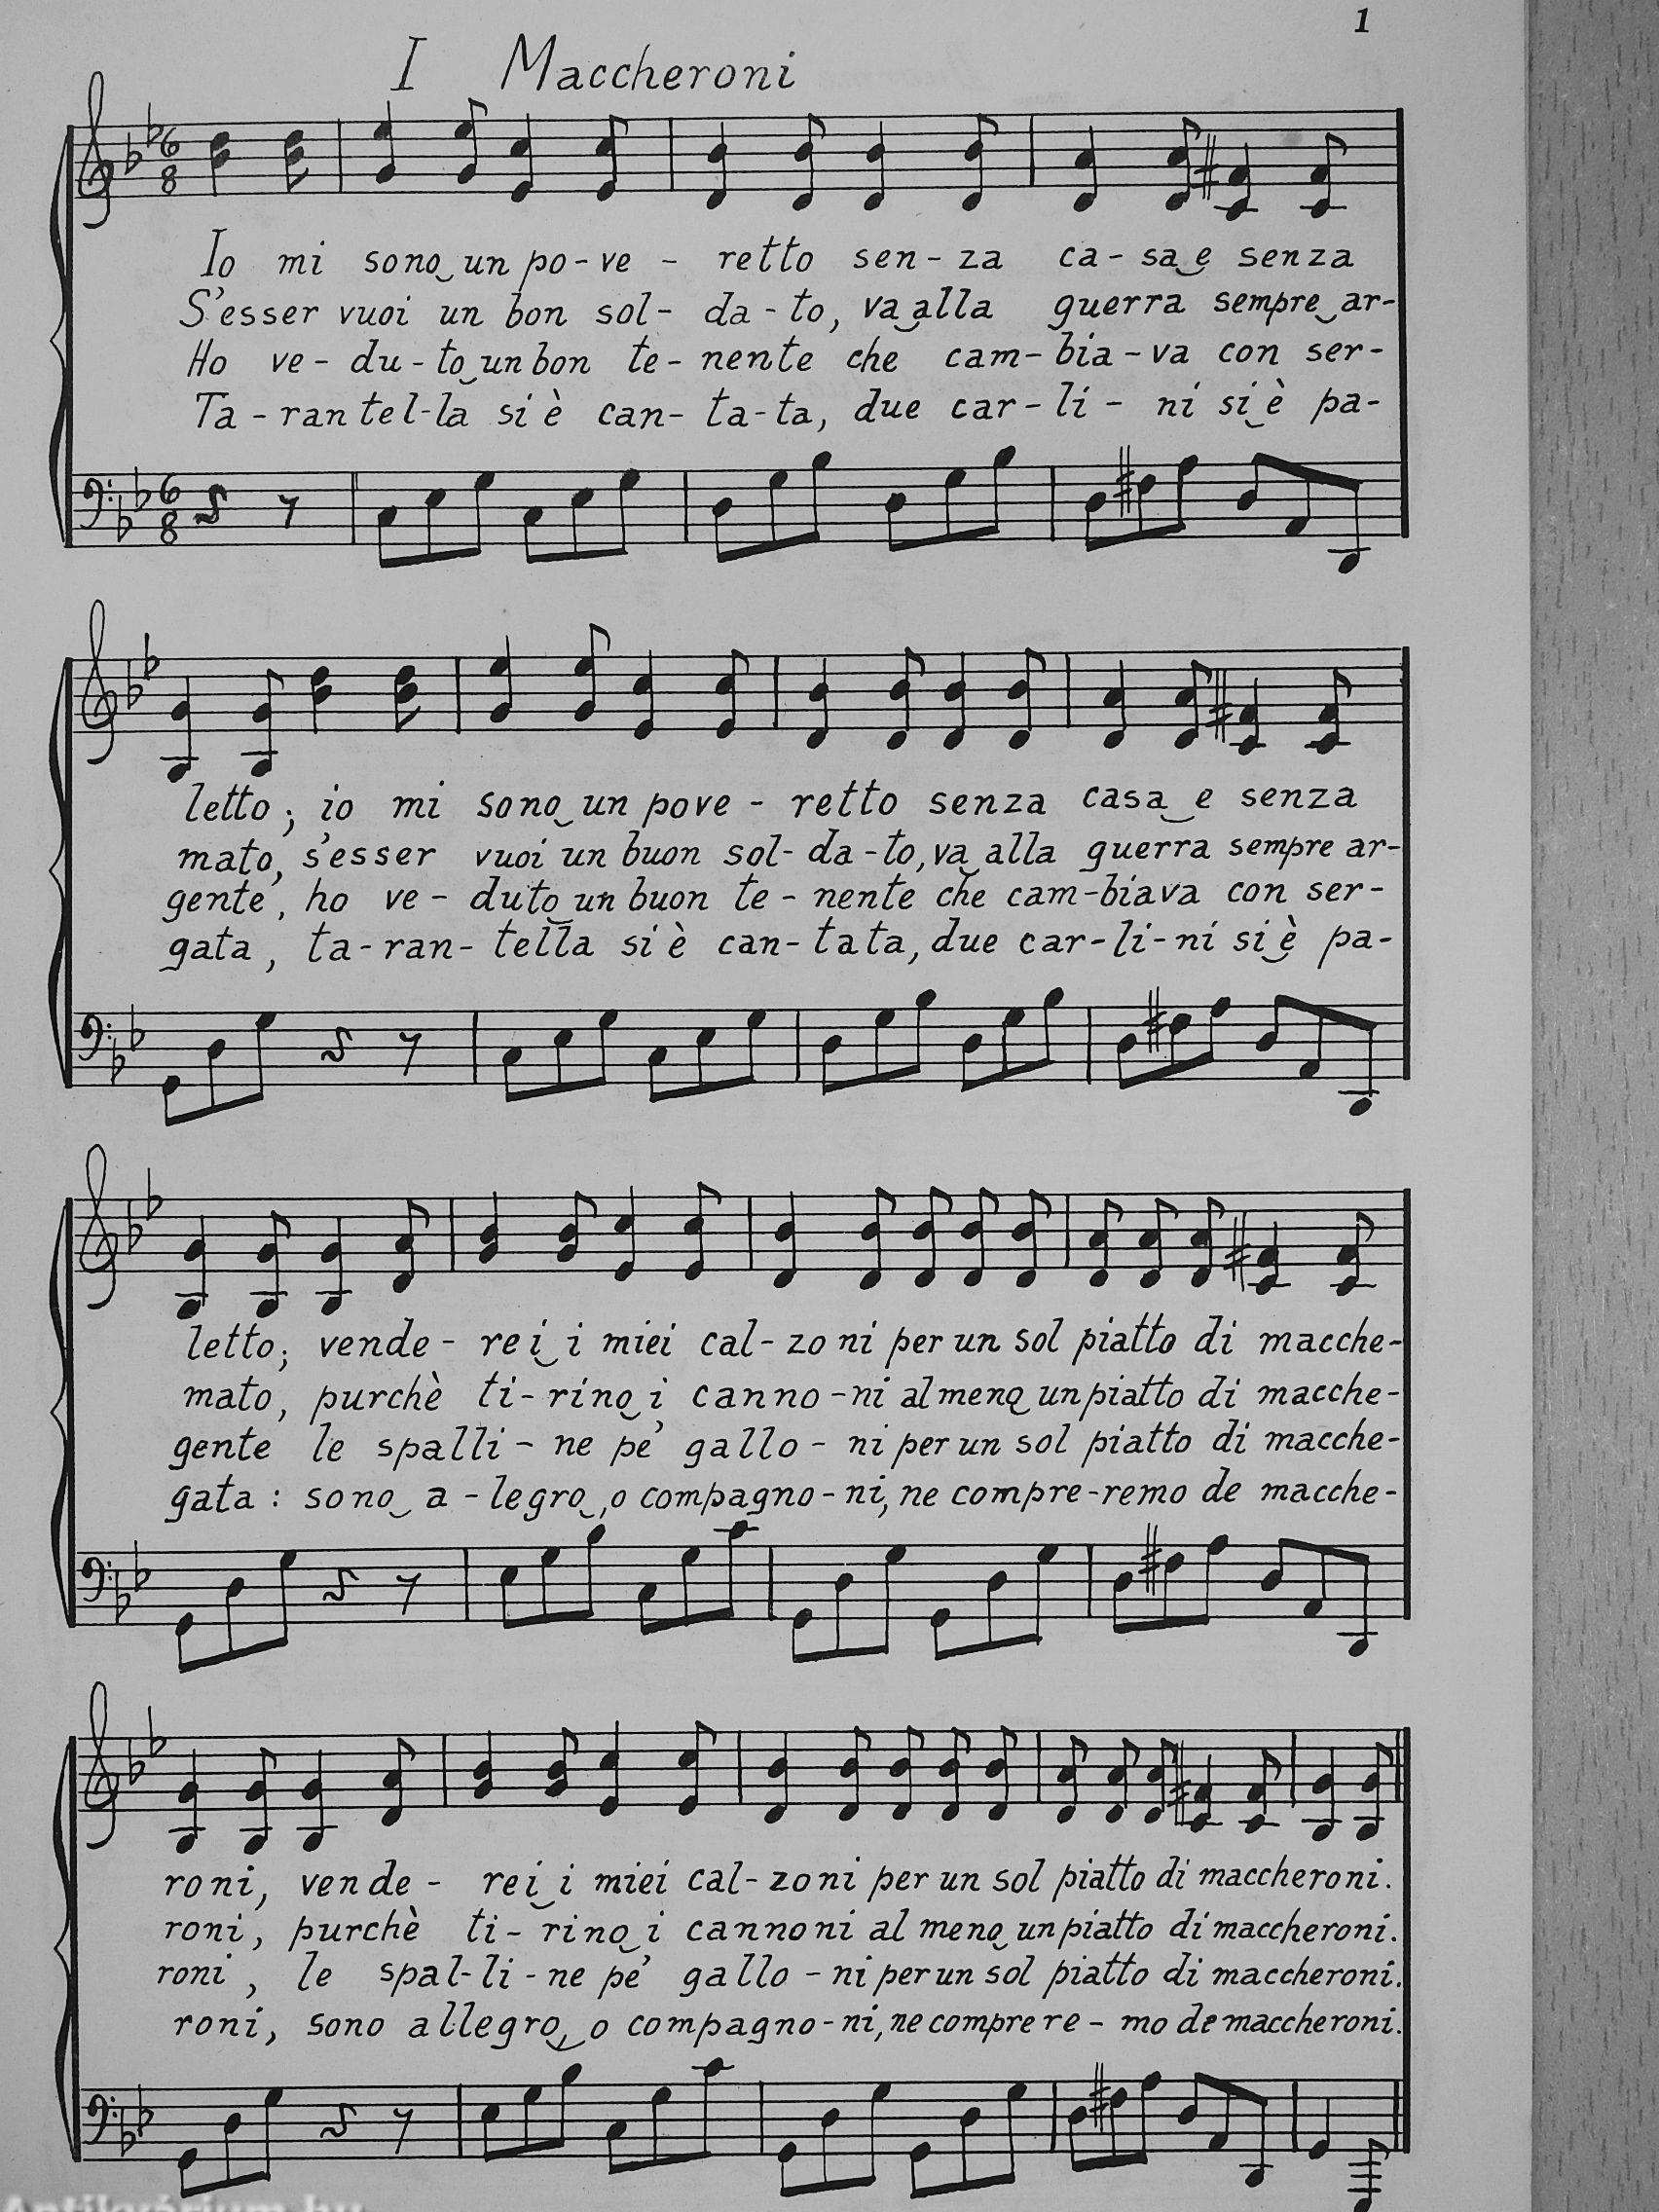 1
I Maccheroni
6
8
Io mi sono un po-ve - retto sen-za ca-sa e senza
S'esser vuoi un bon sol- da-to, va alla guerra sempre ar-
Ho ve-du-to un bon te-nente che cam-bia-va con ser-
Ta-rantel-la si è can-ta-ta, due car-li- ni si è pa-
6
8
letto; io mi sono un pove - retto senza casa e senza
mato, s'esser vuoi un buon sol-da-to, va alla guerra sempre ar-
gente, ho ve- duto un buon te-nente che cam-biava con ser-
gata, ta-ran- tella si è can-tata, due car-li-ni si è pa-
letto; vende- rei i miei cal-zoni per un sol piatto di macche-
mato, purchè ti-rino i canno-ni almeno un piatto di macche-
gente le spalli- ne pe' gallo- ni per un sol piatto di macche-
gata: sono a-legro, o compagno-ni, ne compre-remo de macche-
roni, vende- rei i miei cal-zoni per un sol piatto di maccheroni.
roni, purchè ti-rino i cannoni al meno un piatto di maccheroni.
roni, le spal-li-ne pe' gallo-ni per un sol piatto di maccheroni.
roni, sono allegro, o compagno-ni, ne comprere-mo de maccheroni.
Antikvárium.hu